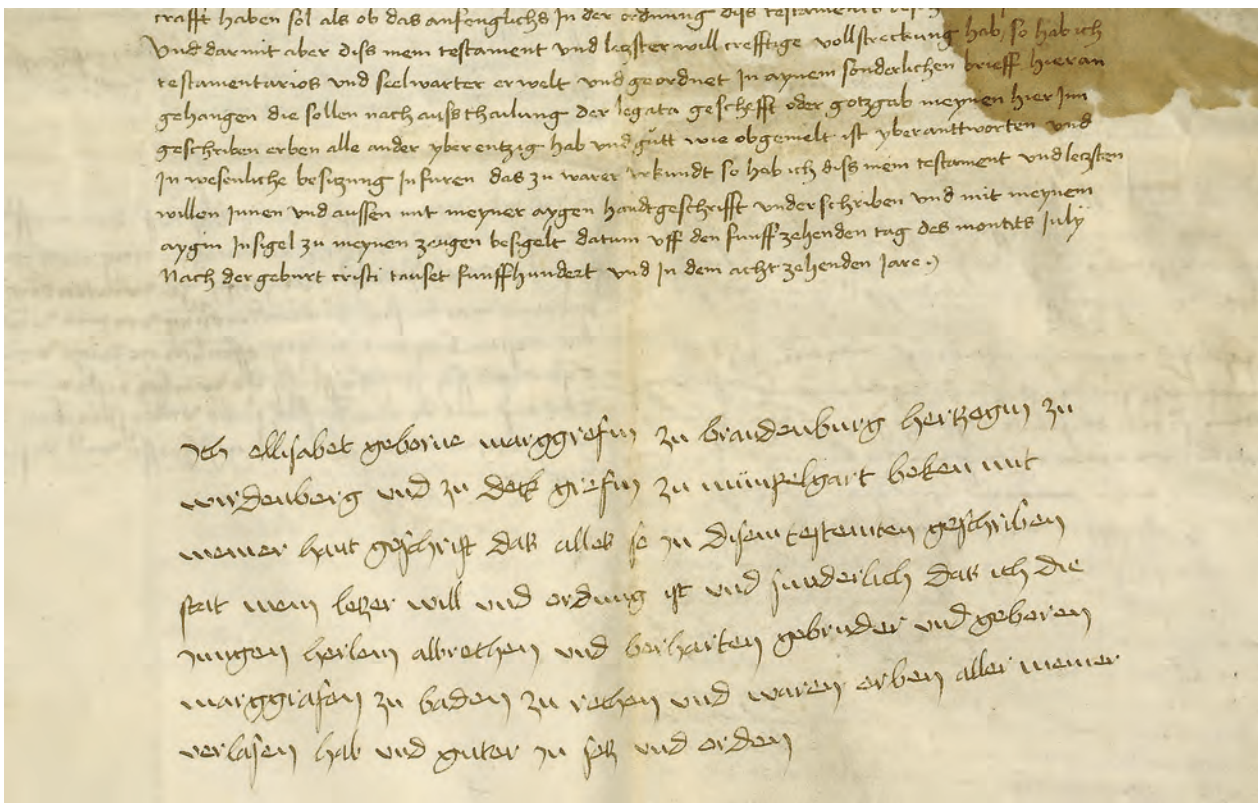 crafft haben sol als ob das anfenglichs In der ordnung diss testaments
Vnd darmit aber diss mein testament vnd letzster will crefftige vollstreckung hab, so hab ich
testamentarios vnd seelwarter erwelt vnd geordnet In aynem sonderlichen brieff hieran
gehangen die sollen nach aussthailung der legata geschefft oder gotzgab meynen hier Inn
geschriben erben alle ander yberentzig hab vnd gůtt wie obgemelt ist yberanttworten vnd
In wesenliche besitzung Infuren das zu warer vrkundt so hab ich diss mein testament vnd letzsten
willen Innen vnd aussen mit meyner aygen handtgeschrifft vnderschriben vnd mit meynem
aygin Insigel zu meynen zeugen besigelt datum vff den funffzehenden tag des montits July
Nach der geburt cristi tauset funffhundert vnd In dem achtzehenden Jare
Ich ellisabet geborne marggrefin zu brandenburg hertzogin zu
wirdenberg und zu deck grefin zu münpelgart beken mit
meiner hant geschrift das alles so in disem testemten geschriben
stat mein letzer will und ordung ist und sunderlich das ich die
jungen herlein albrethen und berharten gebruder und geboren
marggrafen zu baden zu rethen und waren erben aller meiner
verlasen hab und guter in setz und orden